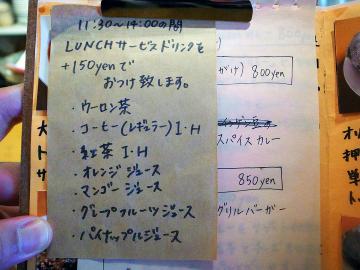 11:30~14:00の間
LUNCHサービスドリンクを
+150yenで
おつけ致します。
・ウーロン茶
・コーヒー(レギュラー)I・H
・紅茶 I・H
・オレンジ ジュース
・マンゴー ジュース
・グレープフルーツジュース
・パイナップルジュース
がけ) 800yen
スパイスカレー
850yen
グリルバーガー
大
ト
サ
オリ
押
単
トッ